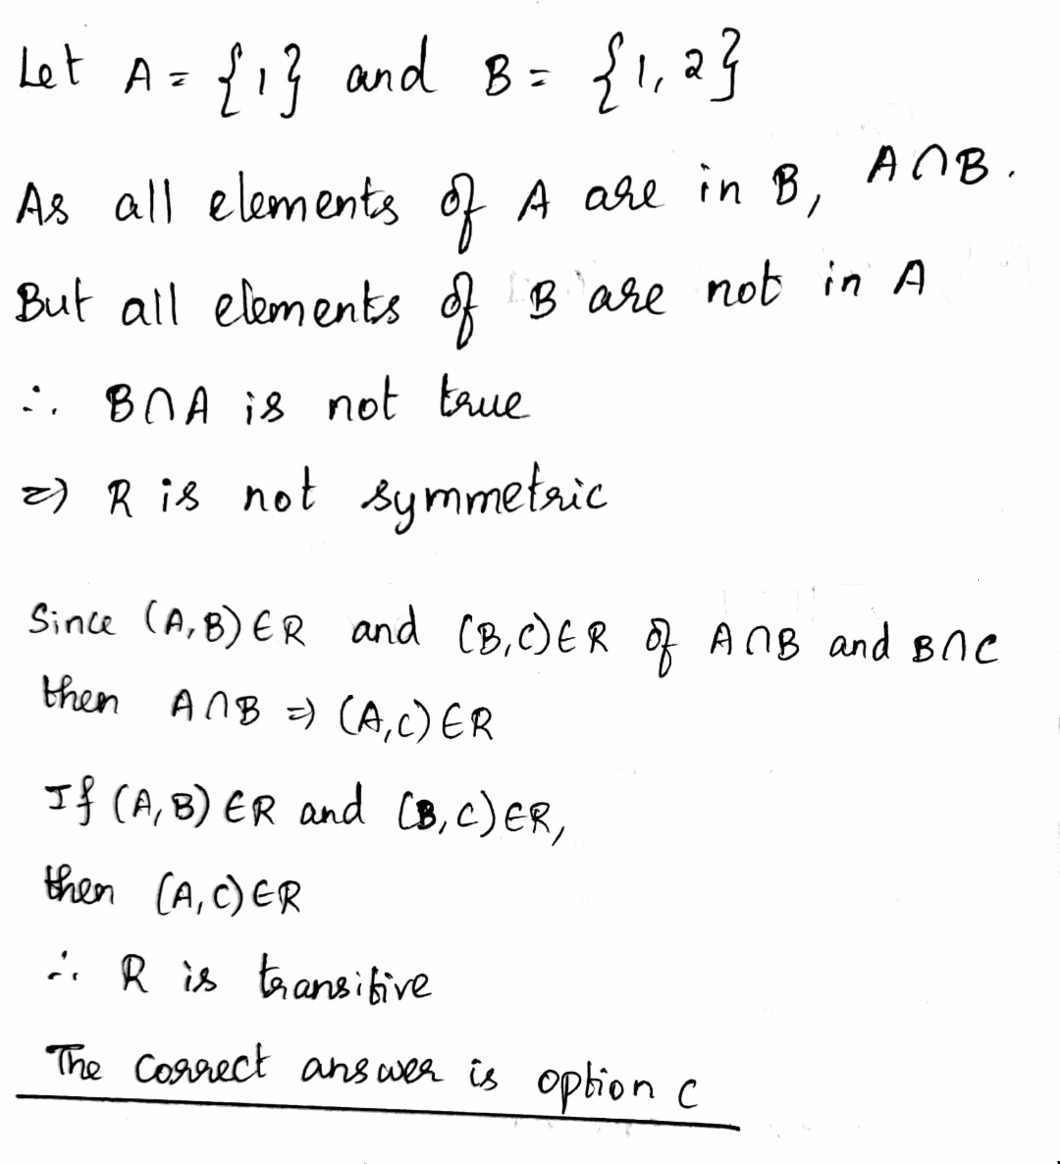 Let A = {1} and B = {1, 2}
As all elements of A are in B, A∩B.
But all elements of B are not in A
∴ B∩A is not true
=> R is not symmetric
Since (A,B)∈R and (B,C)∈R of A∩B and B∩C
then A∩B => (A,C)∈R
If (A,B)∈R and (B,C)∈R,
then (A,C)∈R
∴ R is transitive
The correct answer is option C